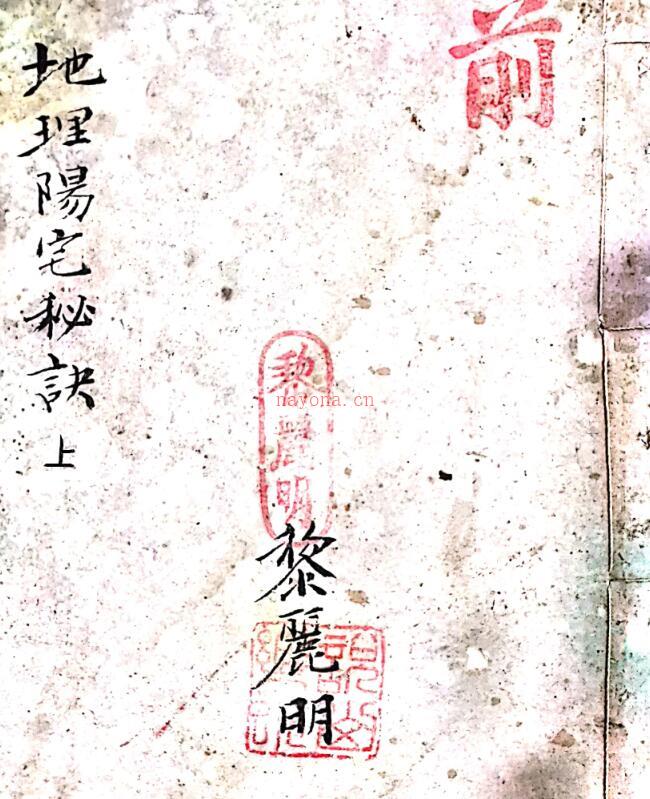 前
黎麗明
黎麗明
地理陽宅秘訣 上
nayona.cn